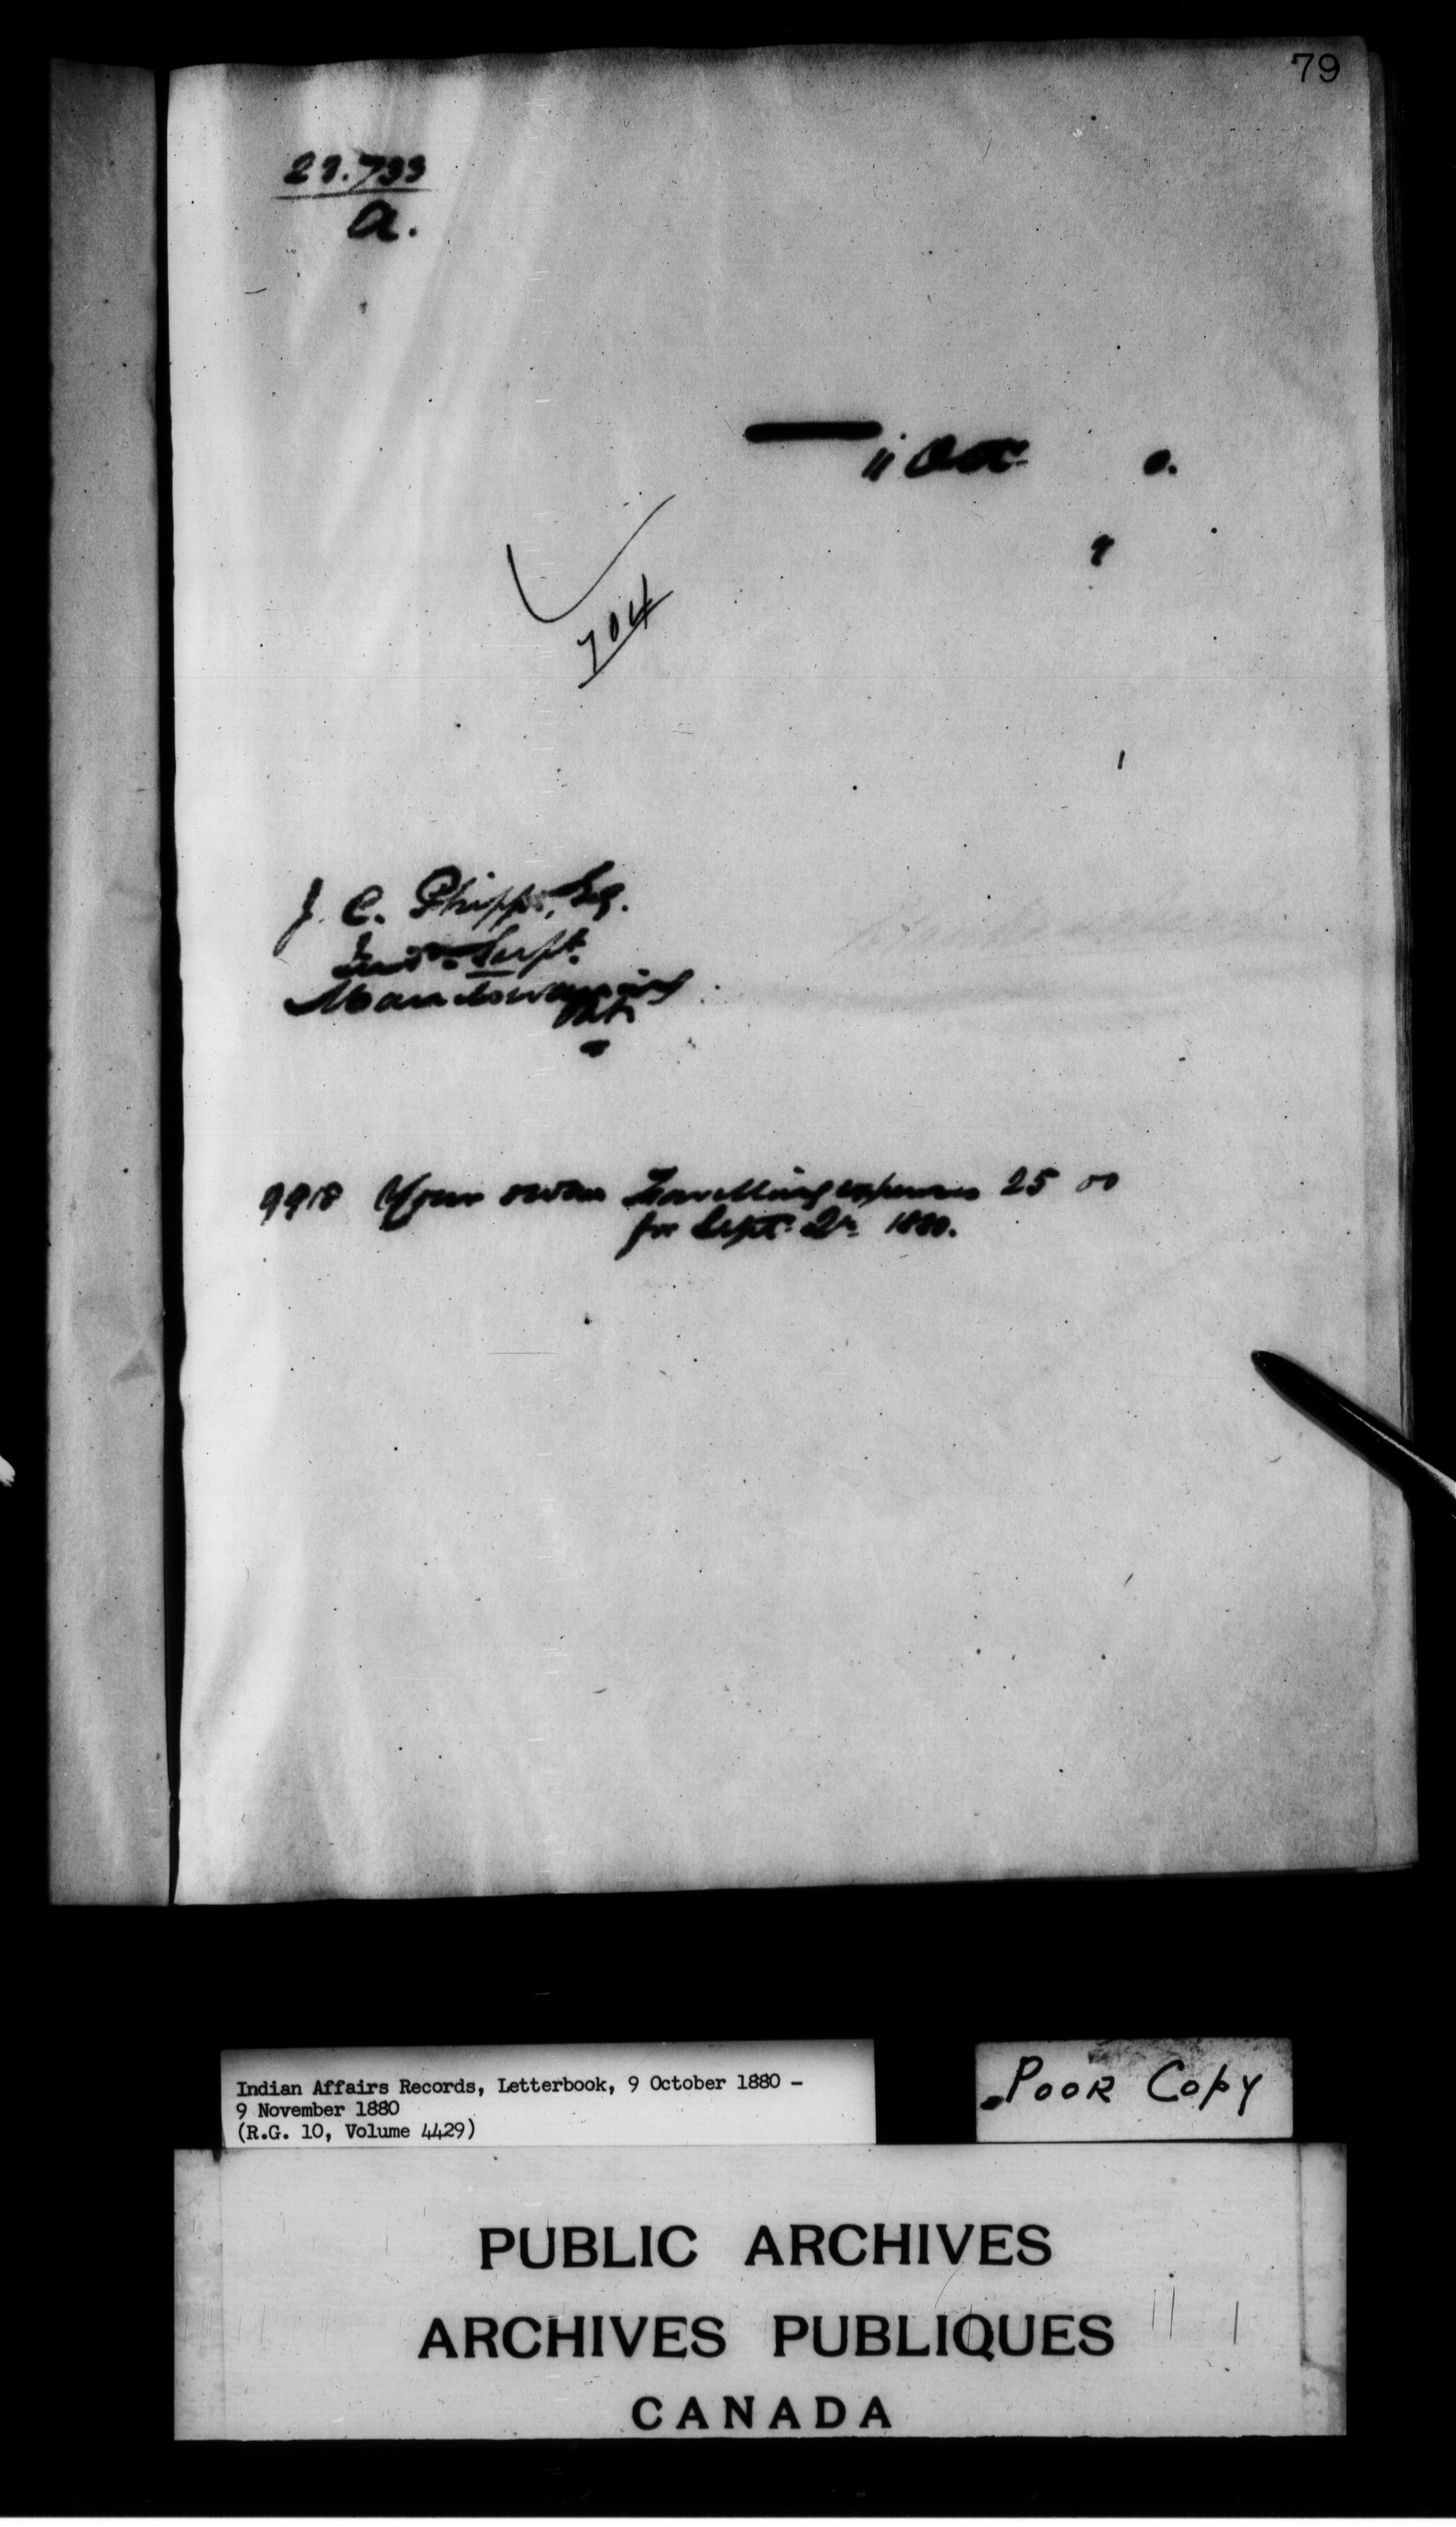 79
29.733
a.
11 Oct 0.
9
704
J. C. Phipps, Esq.
Ind. Supt.
Manitowaning
Ont.
9918 Your own Travelling expenses 25 00
for Sept. Qr. 1880.
Indian Affairs Records, Letterbook, 9 October 1880 -
9 November 1880
(R.G. 10, Volume 4429)
Poor Copy
PUBLIC ARCHIVES
ARCHIVES PUBLIQUES
CANADA